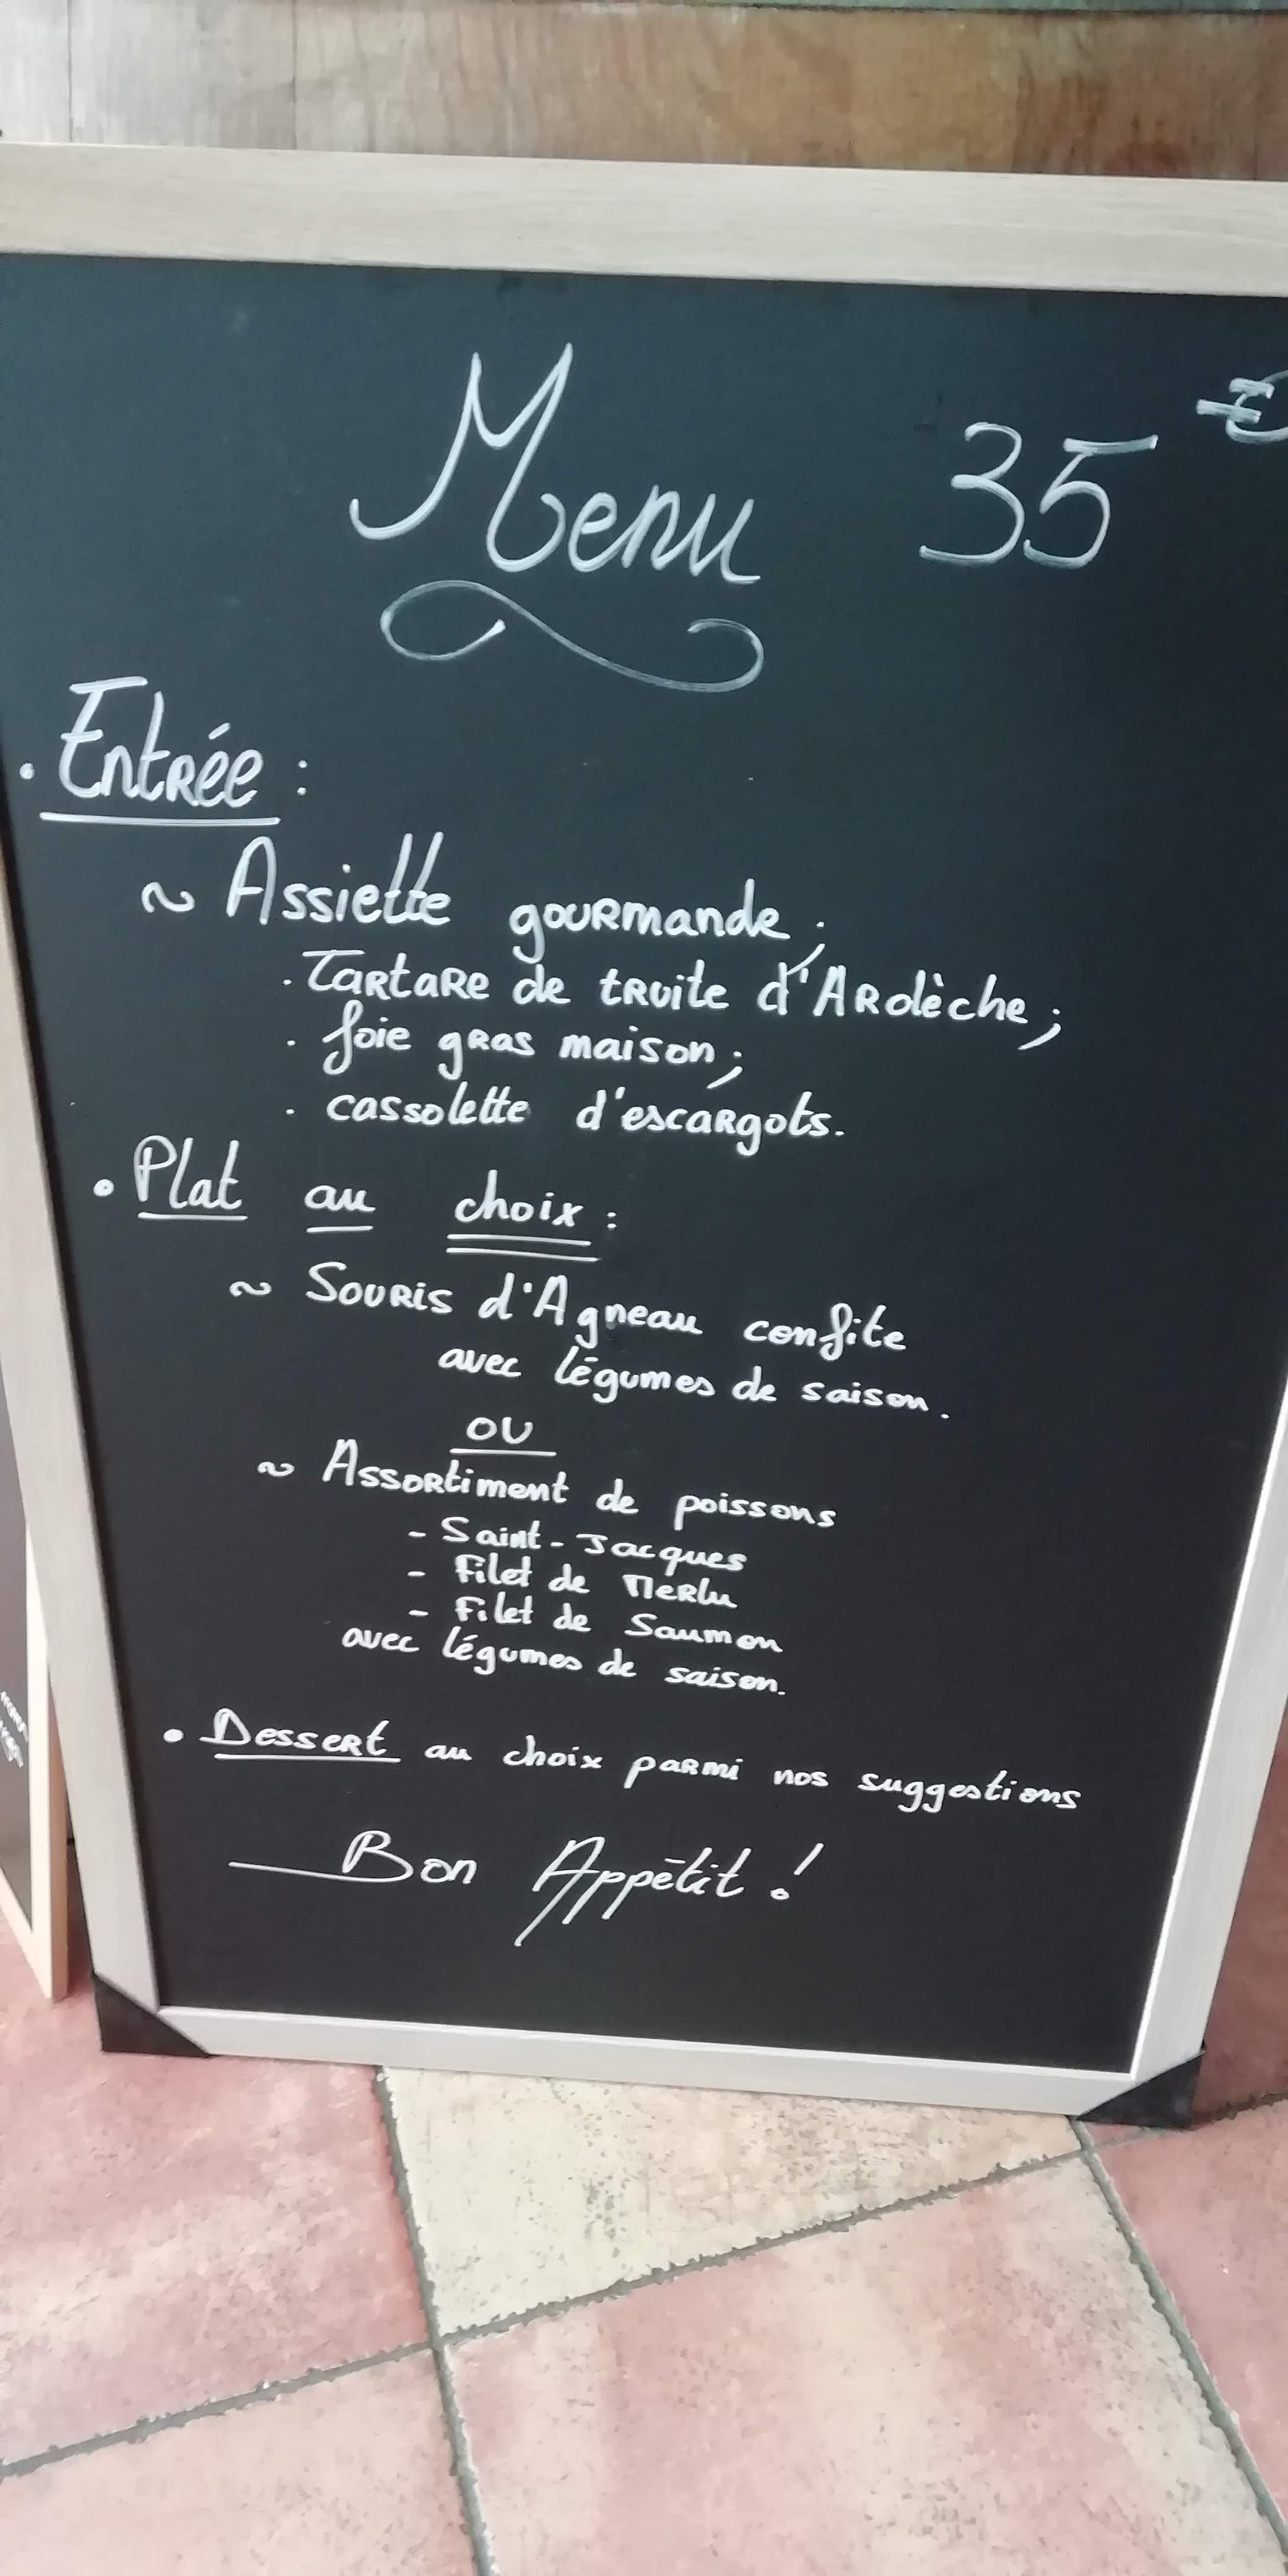 Menu 35 €
. Entrée :
~ Assiette gourmande ;
. Tartare de truite d'Ardèche ;
. foie gras maison ;
. cassolette d'escargots.
• Plat au choix :
~ Souris d'Agneau confite
avec légumes de saison.
OU
~ Assortiment de poissons
- Saint-Jacques
- Filet de Merlu
- Filet de Saumon
avec légumes de saison.
• Dessert au choix parmi nos suggestions
Bon Appétit !